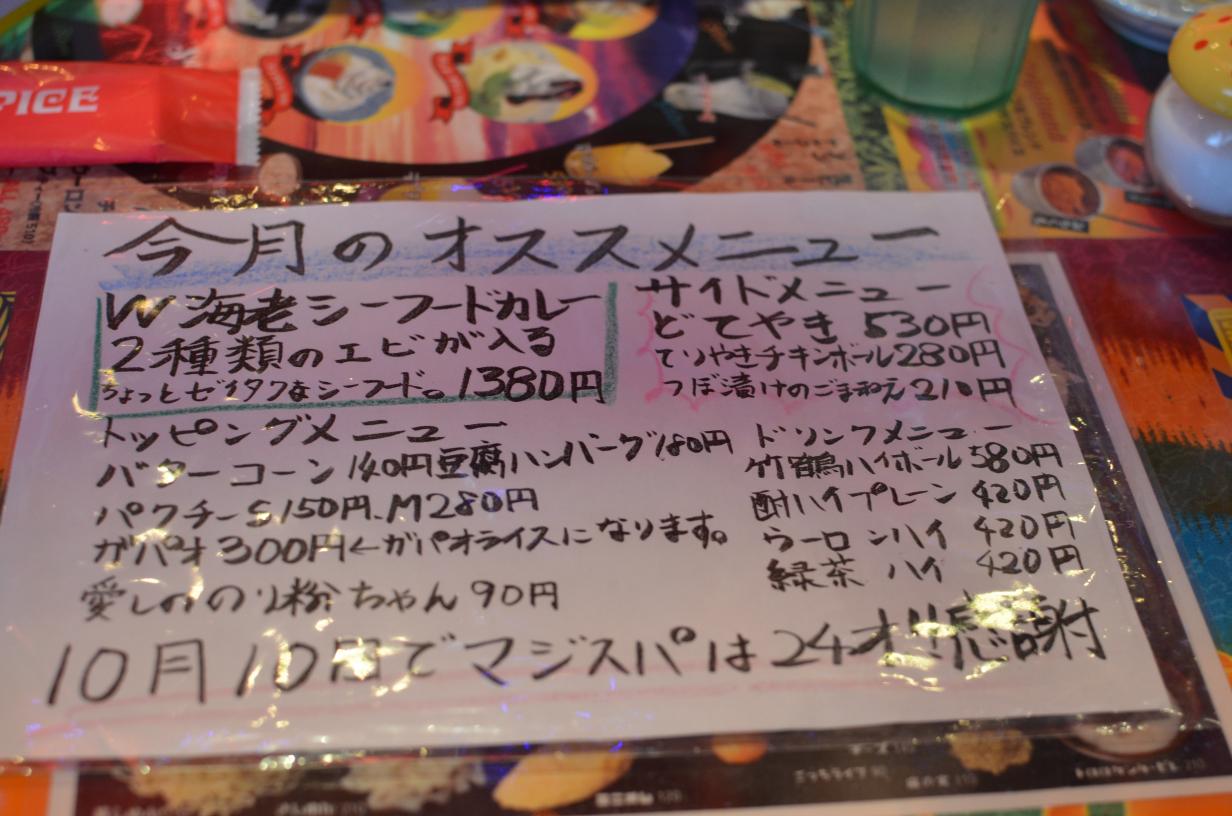 PICE
今月のオススメメニュー
W海老シーフードカレー
2種類のエビが入る
ちょっとゼイタクなシーフード。1380円
サイドメニュー
どてやき 530円
てりやきチキンボール280円
つぼ漬けのごま和え210円
トッピングメニュー
バターコーン140円豆腐ハンバーグ180円
パクチーS150円.M280円
ガパオ300円←ガパオライスになります。
愛しののり粉ちゃん90円
ドリンクメニュー
竹鶴ハイボール580円
酎ハイプレーン 420円
ウーロンハイ 420円
緑茶ハイ 420円
10月10日でマジスパは24才!!感謝